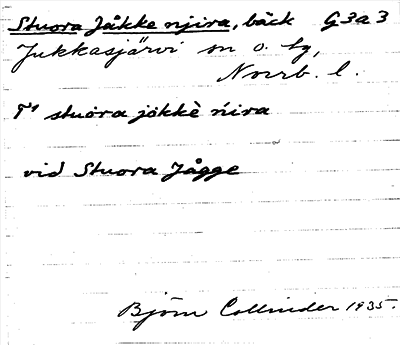 Stuora Jåkke njira, bäck G3a3
Jukkasjärvi sn o. tg,
Norrb. l.
T' stuora jåkkè ńira
vid Stuora Jågge
Björn Collinder 1935.